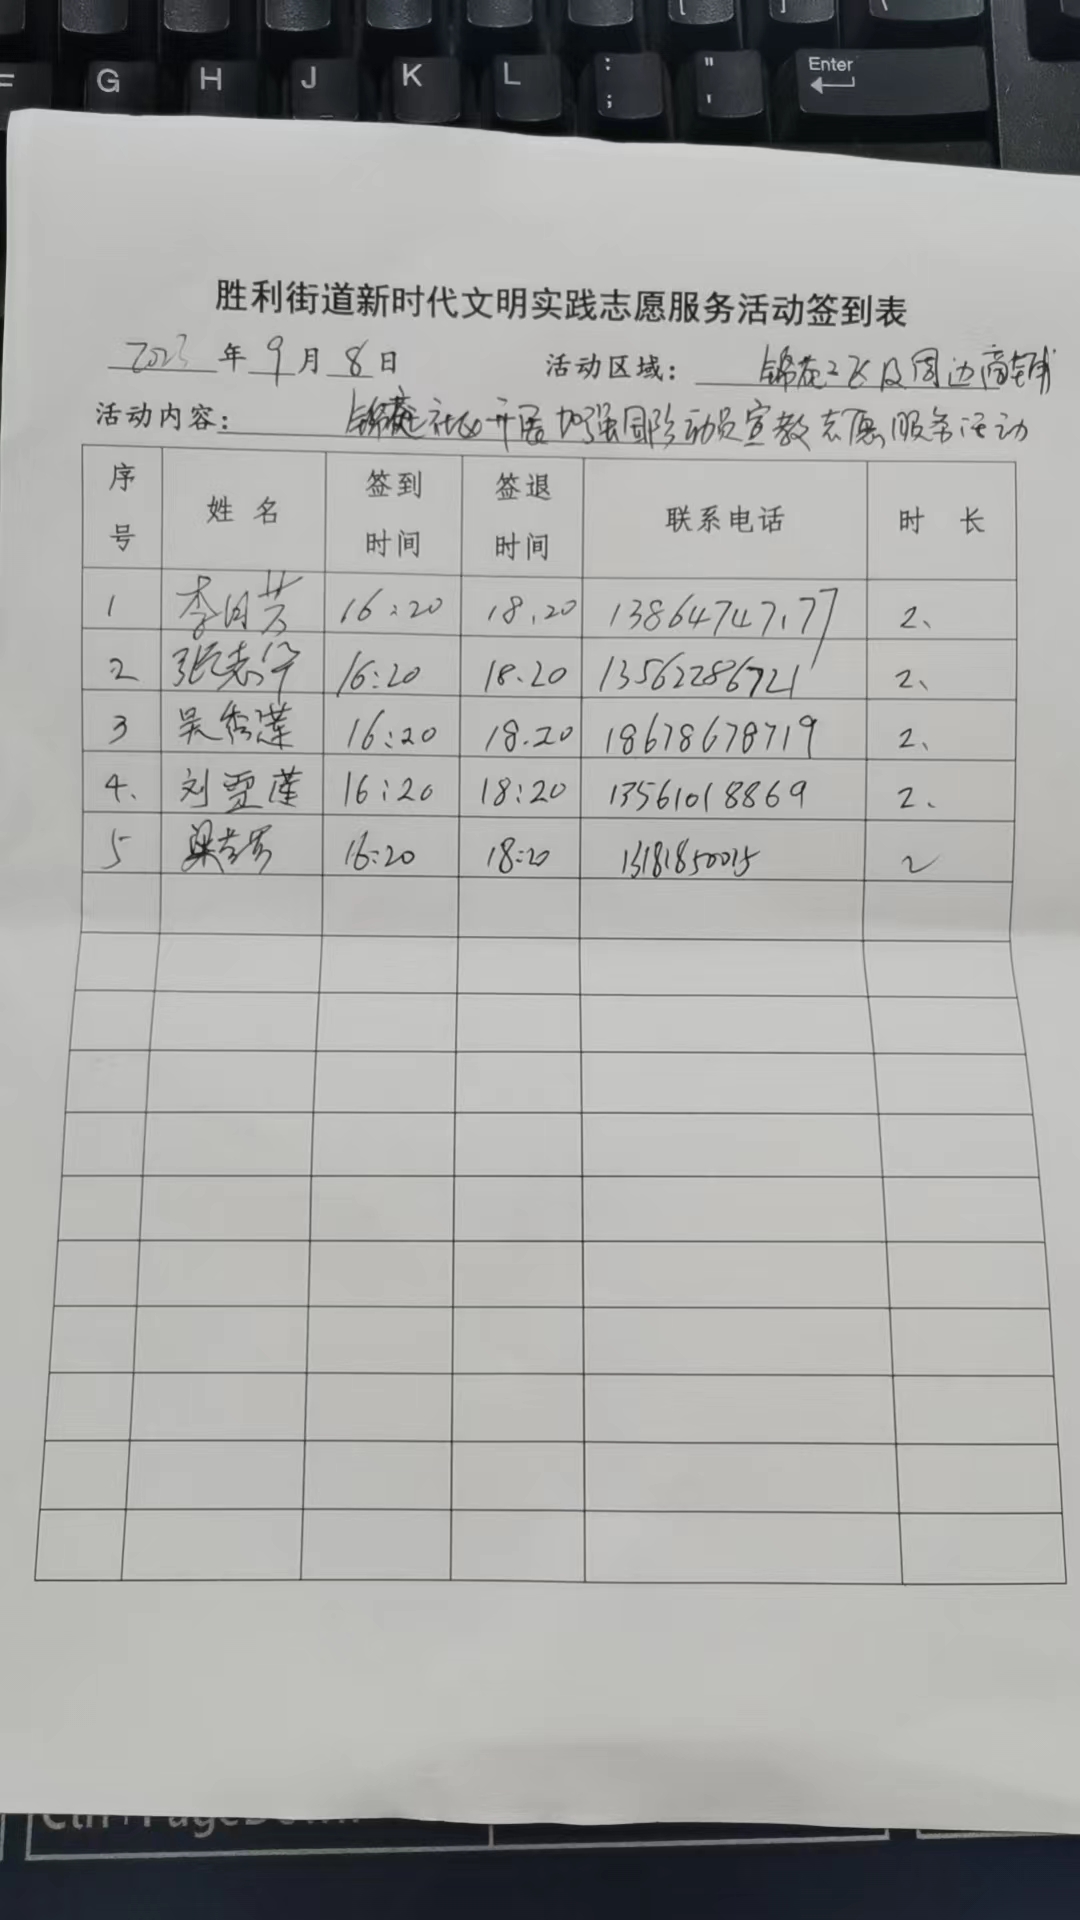 G H J K L : ; " ' Enter
胜利街道新时代文明实践志愿服务活动签到表
2023年9月8日 活动区域：锦苑二区及周边商铺
活动内容：锦苑社区开展加强国防动员宣教志愿服务活动
序号 姓名 签到时间 签退时间 联系电话 时长
1 李月芳 16:20 18.20 13864747177 2、
2 张志华 16:20 18.20 13562286721 2、
3 吴秀莲 16:20 18.20 18678678719 2、
4. 刘雪莲 16:20 18:20 13561018869 2、
5 梁 16:20 18:20 13181850015 2
Ctrl+PageDown